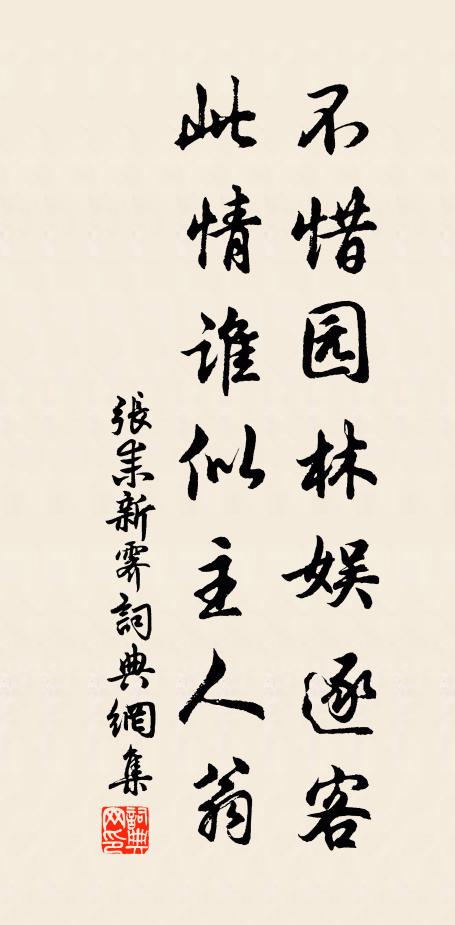 不惜园林娱逐客
此情谁似主人翁
張耒新霽詞典網集
詞典网印